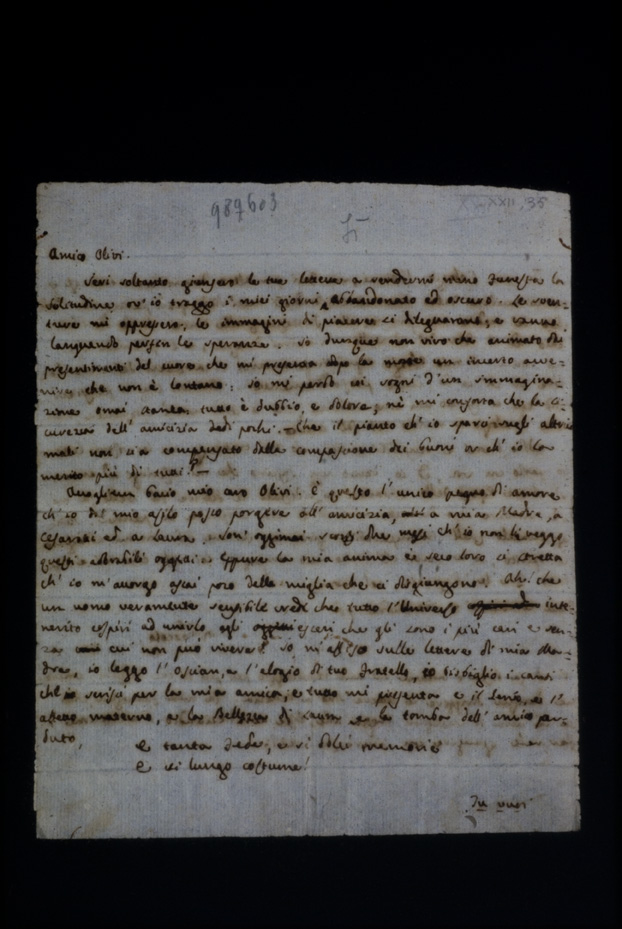 987603
XXII, 35
Amico Olivi.
Jeri soltanto giunsero le tue lettere a rendermi meno funesta la
solitudine ov' io traggo i miei giorni abbandonato ed oscuro. Le sven-
ture mi oppressero, le immagini di piacere si dileguarono, e vanno
languendo perfin le speranze. Io dunque non vivo che animato dal
presentimento del cuore che mi presenta dopo la morte un incerto avve-
nire che non è lontano: io mi perdo coi sogni d'un immagina-
zione omai tutto è dubbio, e dolore, nè mi conforta che la si-
curezza dell' amicizia de' pochi. – Che il pianto ch' io sparsi sugli altrui
mali non sia compensato dalla compassione dei buoni or ch' io la
merito più di tutti? –
Accogli un bacio mio caro Olivi. È questo l'unico pegno di amore
ch' io dal mio asilo posso porgere all' amicizia, a mia Madre, a
Cesarotti ed a Laura. Son' oggimai due mesi ch' io non li veggo
questi adorabili oggetti. Eppure la mia anima è seco loro sì stretta
ch' io m'avveggo assai poco delle miglia che ci disgiungono. Ah! che
un uomo veramente sensibile vede che tutto l'Universo inte-
nerito cospiri ad unirlo agli esseri che gli sono i più cari e sen-
za cui non può vivere! Io m'affiso sulle lettere di mia Ma-
dre, io leggo l'Ossian, e l'elogio di tuo fratello, io i canti
ch' io scrissi per la mia amica; e tutto mi presenta e il Genio, e l'
affetto materno, e la Bellezza di Laura e la tomba dell' amico per-
duto,
E tanta fede, e sì dolci memorie
E sì lungo costume!
Tu vuoi